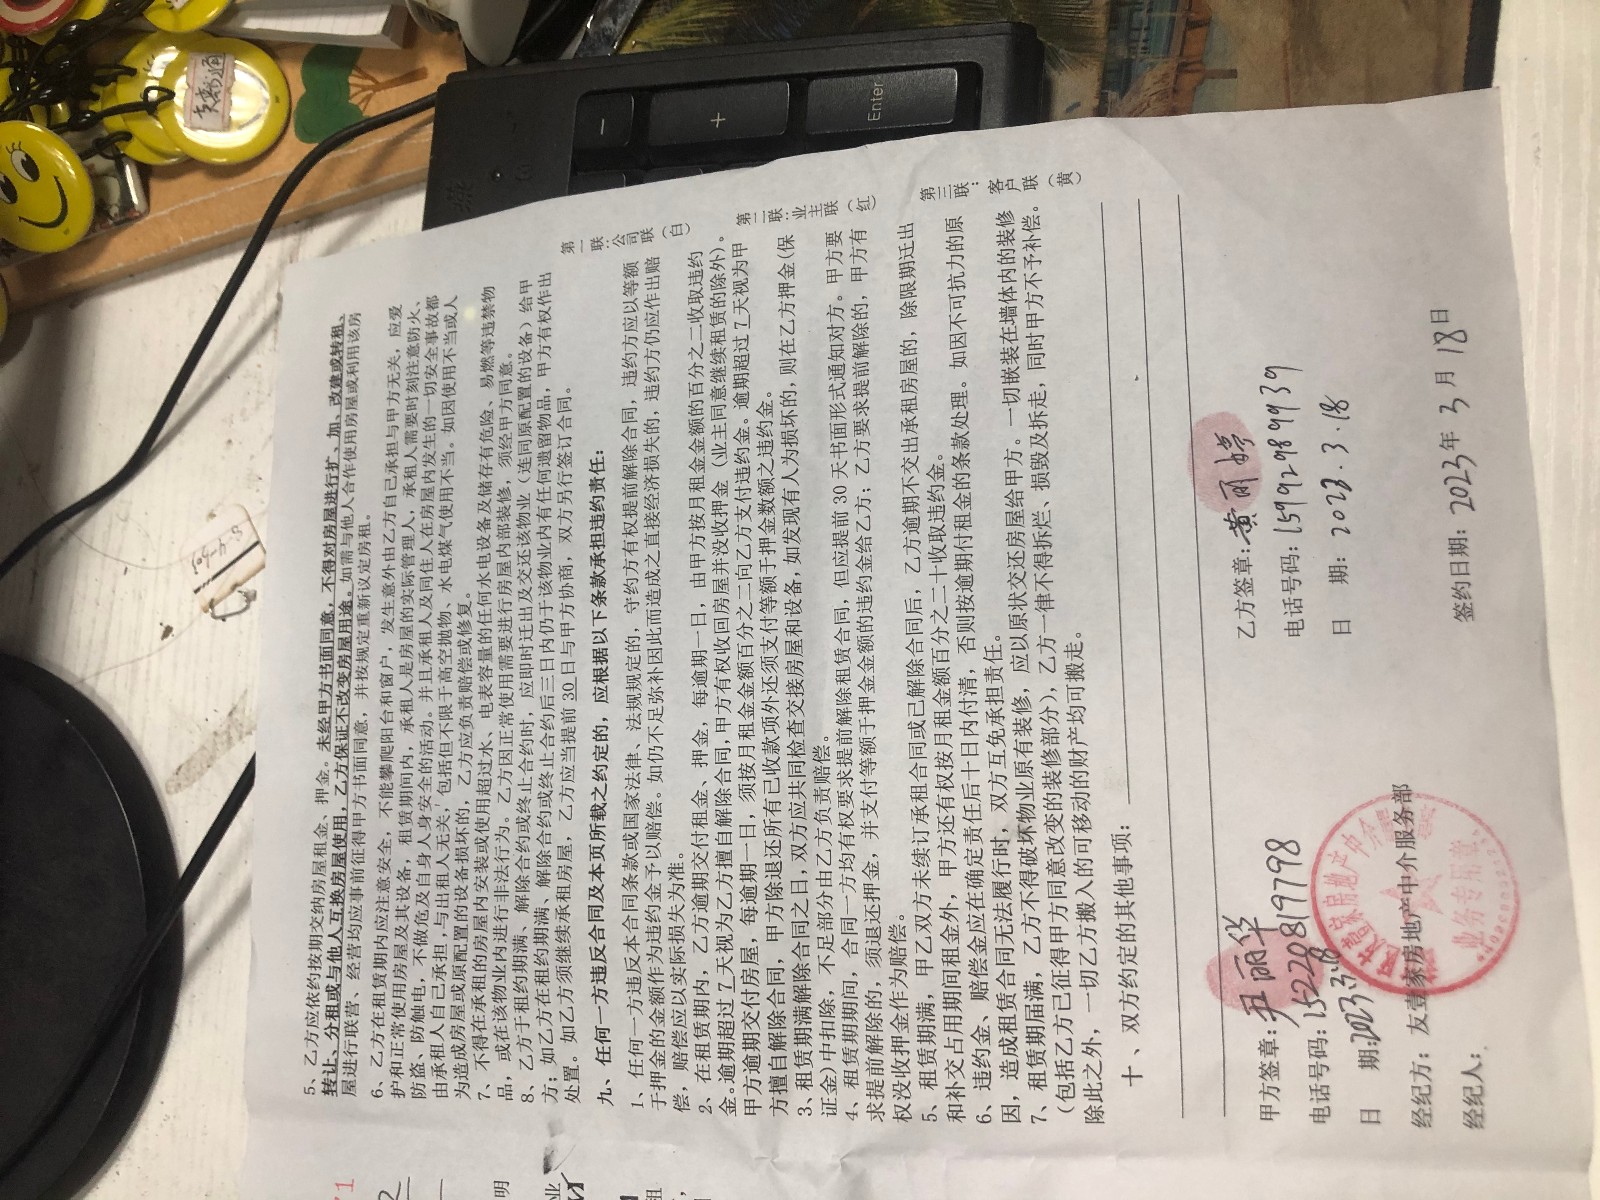 5、乙方应依约按期交纳房屋租金、押金。未经甲方书面同意，不得对房屋进行扩、加、改建或转租、
转让、分租或与他人互换房屋使用，乙方保证不改变房屋用途。如需与他人合作使用房屋或利用该房
屋进行联营、经营均应事前征得甲方书面同意，并按规定重新议定房租。
6、乙方在租赁期内应注意安全，不能攀爬阳台和窗户，发生意外由乙方自己承担与甲方无关，应爱
护和正常使用房屋及其设备，租赁期间内，承租人是房屋的实际管理人，承租人需要时刻注意防火、
防盗、防触电，不做危及自身人身安全的活动。并且承租人及同住人在房屋内发生的一切安全事故都
由承租人自己承担，与出租人无关，包括但不限于高空抛物、水电煤气使用不当。如因使用不当或人
为造成房屋或原配置的设备损坏的，乙方应负责赔偿或修复。
7、不得在承租的房屋内安装或使用超过水、电表容量的任何水电设备及储存有危险、易燃等违禁物
品，或在该物业内进行非法行为。乙方因正常使用需要进行房屋内部装修，须经甲方同意。
8、乙方于租约期满、解除合约或终止合约时，应即时迁出及交还该物业（连同原配置的设备）给甲
方；如乙方在租约期满、解除合约或终止合约后三日内仍于该物业内有任何遗留物品，甲方有权作出
处置。如乙方须继续承租房屋，乙方应当提前 30 日与甲方协商，双方另行签订合同。
九、任何一方违反合同及本页所载之约定的，应根据以下条款承担违约责任：
1、任何一方违反本合同条款或国家法律、法规规定的，守约方有权提前解除合同，违约方应以等额
于押金的金额作为违约金予以赔偿。如仍不足弥补因此而造成之直接经济损失的，违约方仍应作出赔
偿，赔偿应以实际损失为准。
2、在租赁期内，乙方逾期交付租金、押金，每逾期一日，由甲方按月租金金额的百分之二收取违约
金。逾期超过 7 天视为乙方擅自解除合同，甲方有权收回房屋并没收押金（业主同意继续租赁的除外）。
甲方逾期交付房屋，每逾期一日，须按月租金金额百分之二向乙方支付违约金。逾期超过 7 天视为甲
方擅自解除合同，甲方除退还所有已收款项外还须支付等额于押金数额之违约金。
3、租赁期满解除合同之日，双方应共同检查交接房屋和设备，如发现有人为损坏的，则在乙方押金（保
证金）中扣除，不足部分由乙方负责赔偿。
4、租赁期期间，合同一方均有权要求提前解除租赁合同，但应提前 30 天书面形式通知对方。甲方要
求提前解除的，须退还押金，并支付等额于押金金额的违约金给乙方；乙方要求提前解除的，甲方有
权没收押金作为赔偿。
5、租赁期满，甲乙双方未续订承租合同或已解除合同后，乙方逾期不交出承租房屋的，除限期迁出
和补交占用期间租金外，甲方还有权按月租金额百分之二十收取违约金。
6、违约金、赔偿金应在确定责任后十日内付清，否则按逾期付租金的条款处理。如因不可抗力的原
因，造成租赁合同无法履行时，双方互免承担责任。
7、租赁期届满，乙方不得破坏物业原有装修，应以原状交还房屋给甲方。一切嵌装在墙体内的装修
（包括乙方已征得甲方同意改变的装修部分），乙方一律不得拆烂、损毁及拆走，同时甲方不予补偿。
除此之外，一切乙方搬入的可移动的财产均可搬走。
十、双方约定的其他事项：
第一联：公司联（白）
第二联：业主联（红）
第三联：客户联（黄）
甲方签章：尹丽华
电话号码：15220819798
日 期：2023.3.18
经纪方：友壹家房地产中介服务部
经纪人：
乙方签章：黄丽婷
电话号码：15992989939
日 期：2023.3.18
签约日期：2023年3月18日
业务专用章
Enter
+
−